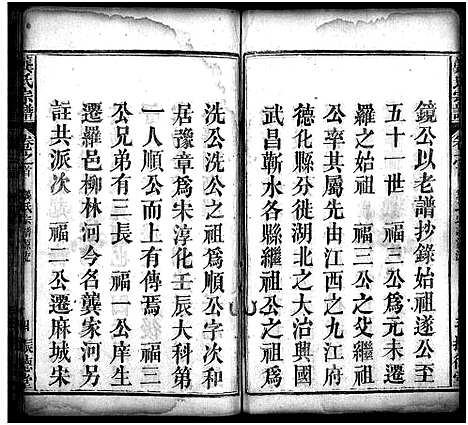 鏡公以老譜抄錄始祖遂公至
五十一世　福三公爲元末遷
羅之始祖　福三公之艾繼祖
公率其屬先由江西之九江府
德化縣分徙湖北之大冶興國
武昌蘄水各縣繼祖公之祖爲
洗公洗公之祖爲順公字次律
居豫章爲宋淳化壬辰大科第
一人順公而上有傳焉　福三
公兄弟有三長　福一公庠生
遷羅邑柳林河今名龔家河另
註共派次　福二公遷麻城宋
龔氏宗譜
卷之首
振德堂